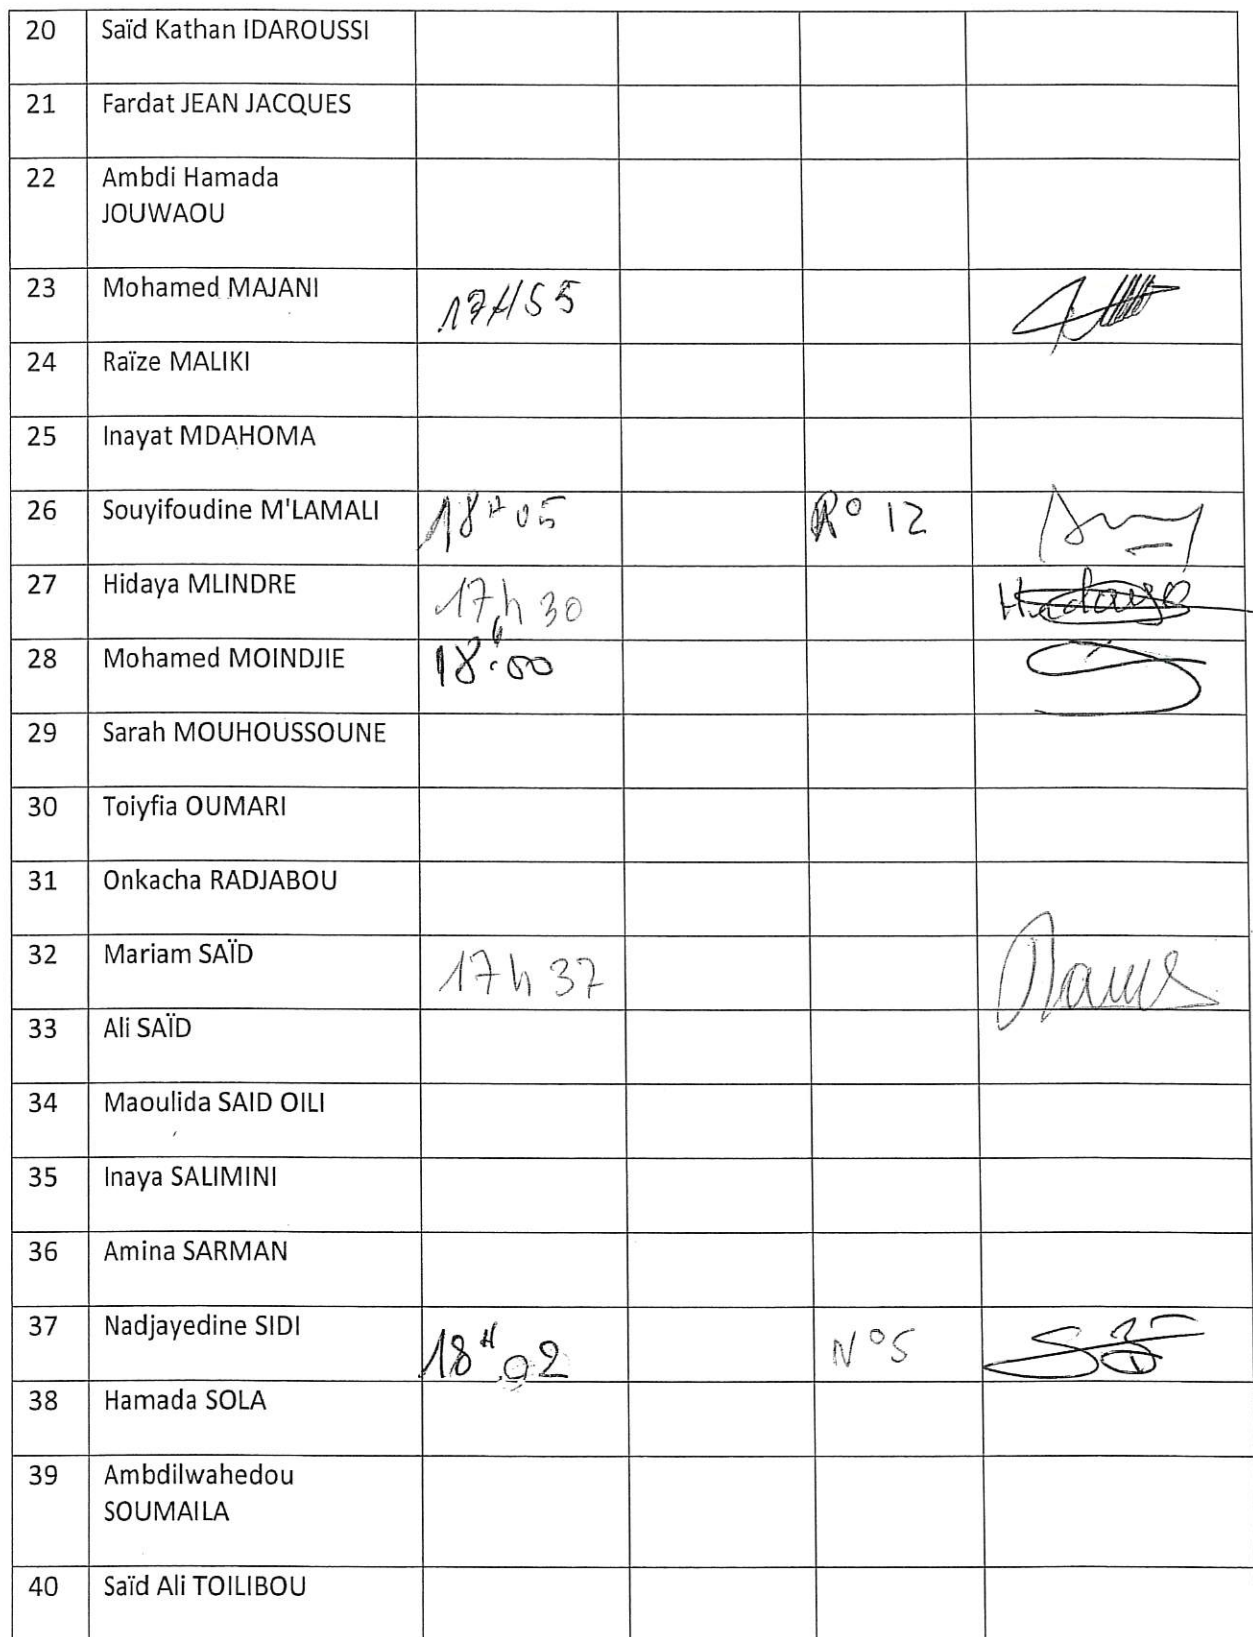 20 Saïd Kathan IDAROUSSI
21 Fardat JEAN JACQUES
22 Ambdi Hamada
JOUWAOU
23 Mohamed MAJANI 17H55
24 Raïze MALIKI
25 Inayat MDAHOMA
26 Souyifoudine M'LAMALI 18H05 R° 12
27 Hidaya MLINDRE 17h30 Hidaya
28 Mohamed MOINDJIE 18H00
29 Sarah MOUHOUSSOUNE
30 Toiyfia OUMARI
31 Onkacha RADJABOU
32 Mariam SAÏD 17h37
33 Ali SAÏD
34 Maoulida SAID OILI
35 Inaya SALIMINI
36 Amina SARMAN
37 Nadjayedine SIDI 18H02 N°5
38 Hamada SOLA
39 Ambdilwahedou
SOUMAILA
40 Saïd Ali TOILIBOU